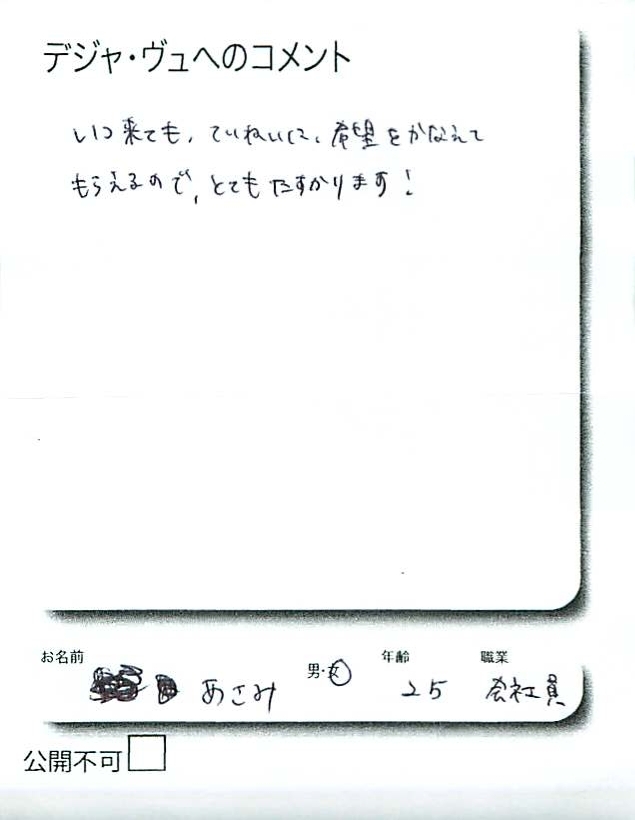 デジャ・ヴュへのコメント
いつ来ても、ていねいに、希望をかなえて
もらえるので、とてもたすかります！
お名前 男・女 年齢 職業
あさみ 25 会社員
公開不可